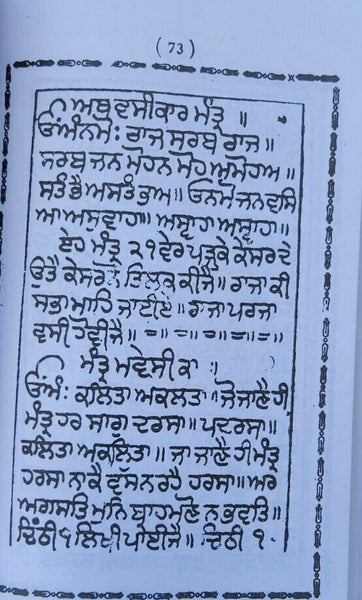 ( 73 )
ੴ ਅਥ ਵਸੀਕਾਰ ਮੰਤ੍ਰ ॥
ਓਅੰਨਮੋਃ ਰਾਜ ਸਰਬੇ ਰਾਜ॥
ਸਰਬ ਜਨ ਮੋਹਨ ਮੋਹ ਅਮੋਹਾਅ॥
ਸਤੰਭੈ ਅਸਤੰਭੂਾਅ॥ ਓਨਮੋ ਜਨਵਸਿ
ਆ ਅਸੁਵਾਹਾ॥ ਅਸ੍ਵਾਹਾ ਅਸ੍ਵਾਹਾ॥
ਏਹ ਮੰਤ੍ਰ ੨੧ ਵੇਰ ਪੜਕੇ ਕੇਸਰ ਦੇ
ਉਤੈ ਕੇਸਰ ਤਿਲਕ ਕੀਜੈ॥ ਰਾਜਾ ਕੀ
ਸਭਾ ਮਾਹਿ ਜਾਈਏ॥ ਰਾਜਾ ਪਰਜਾ
ਵਸੀ ਹੋਵੀਜੈ॥
ਮੰਤ੍ਰ ਮਵਸੀ ਕਾ ॥
ਓਅੰਃ ਕਲਿਤਾ ਅਕਲਤਾ॥ ਜੋ ਜਾਣੈ ਹੀ
ਮੰਤ੍ਰ ਹਰ ਸਾਗੁ ਦਰਸਾ॥ ਪਦਰਸਾ॥
ਕਲਿਤਾ ਅਕਲਿਤਾ॥ ਜਾ ਜਾਣੈ ਹੀ ਮੰਤ੍ਰ
ਹਰਸਾ ਨਾਕੈ ਵੁੱਸ ਨ ਰਹੈ ਹਰਸਾ॥ ਅਰ
ਅਗਸਤਿ ਮੁਨਿ ਬ੍ਰਾਹਮਣੋ ਨ ਭਵਤਿ॥
ਢਿੰਠੀ ੧ ਲਿਖੀ ਪਾਈਜੈ॥ ਢਿਠੀ ੧